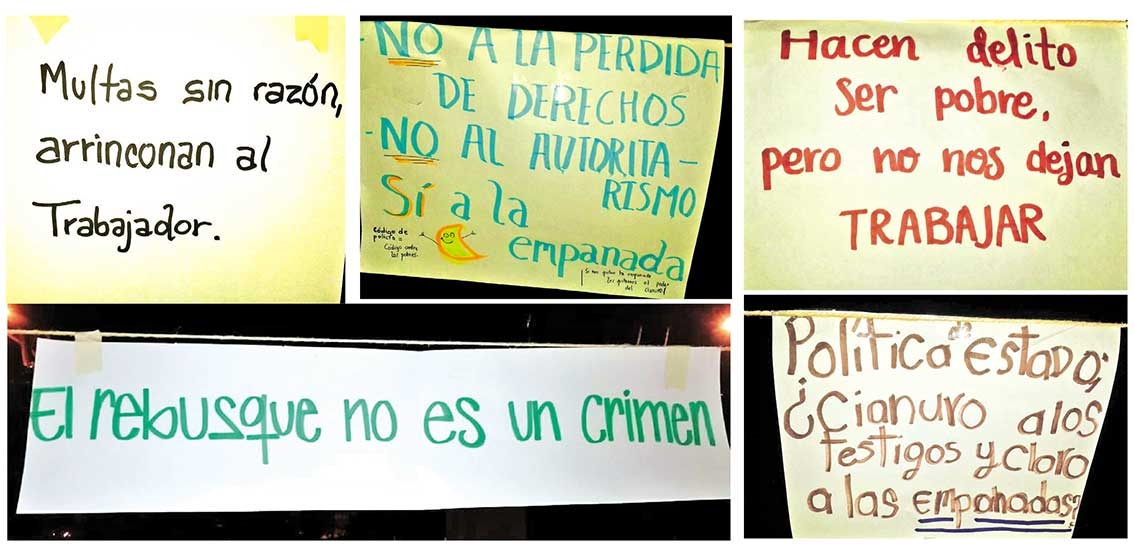 Multas sin razón,
arrinconan al
Trabajador.
-NO A LA PERDIDA
DE DERECHOS
-NO AL AUTORITA-
RISMO
Sí a la
empanada
Código de
policía =
Código contra
los pobres.
Si nos quitan la empanada
les quitamos el poder
del
Hacen delito
Ser pobre.
pero no nos dejan
TRABAJAR
El rebusque no es un crimen
Política de ESTADO;
¿Cianuro a los
testigos y Cloro
a las empanadas?